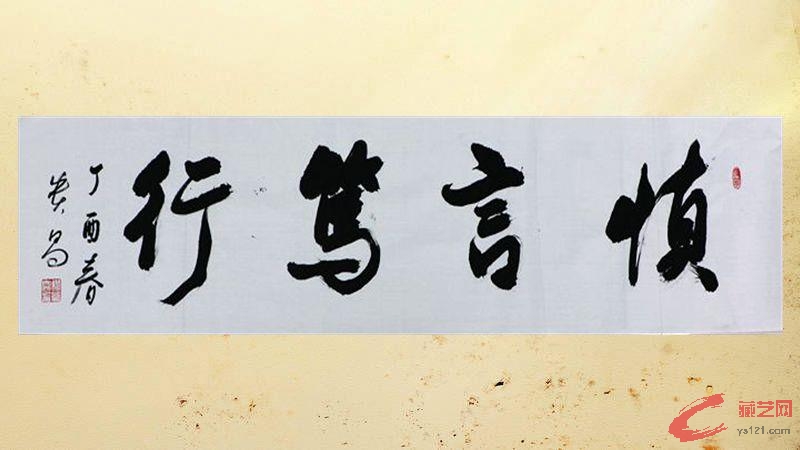 慎言篤行
丁酉春
贵昌
藏艺网
ys121.com